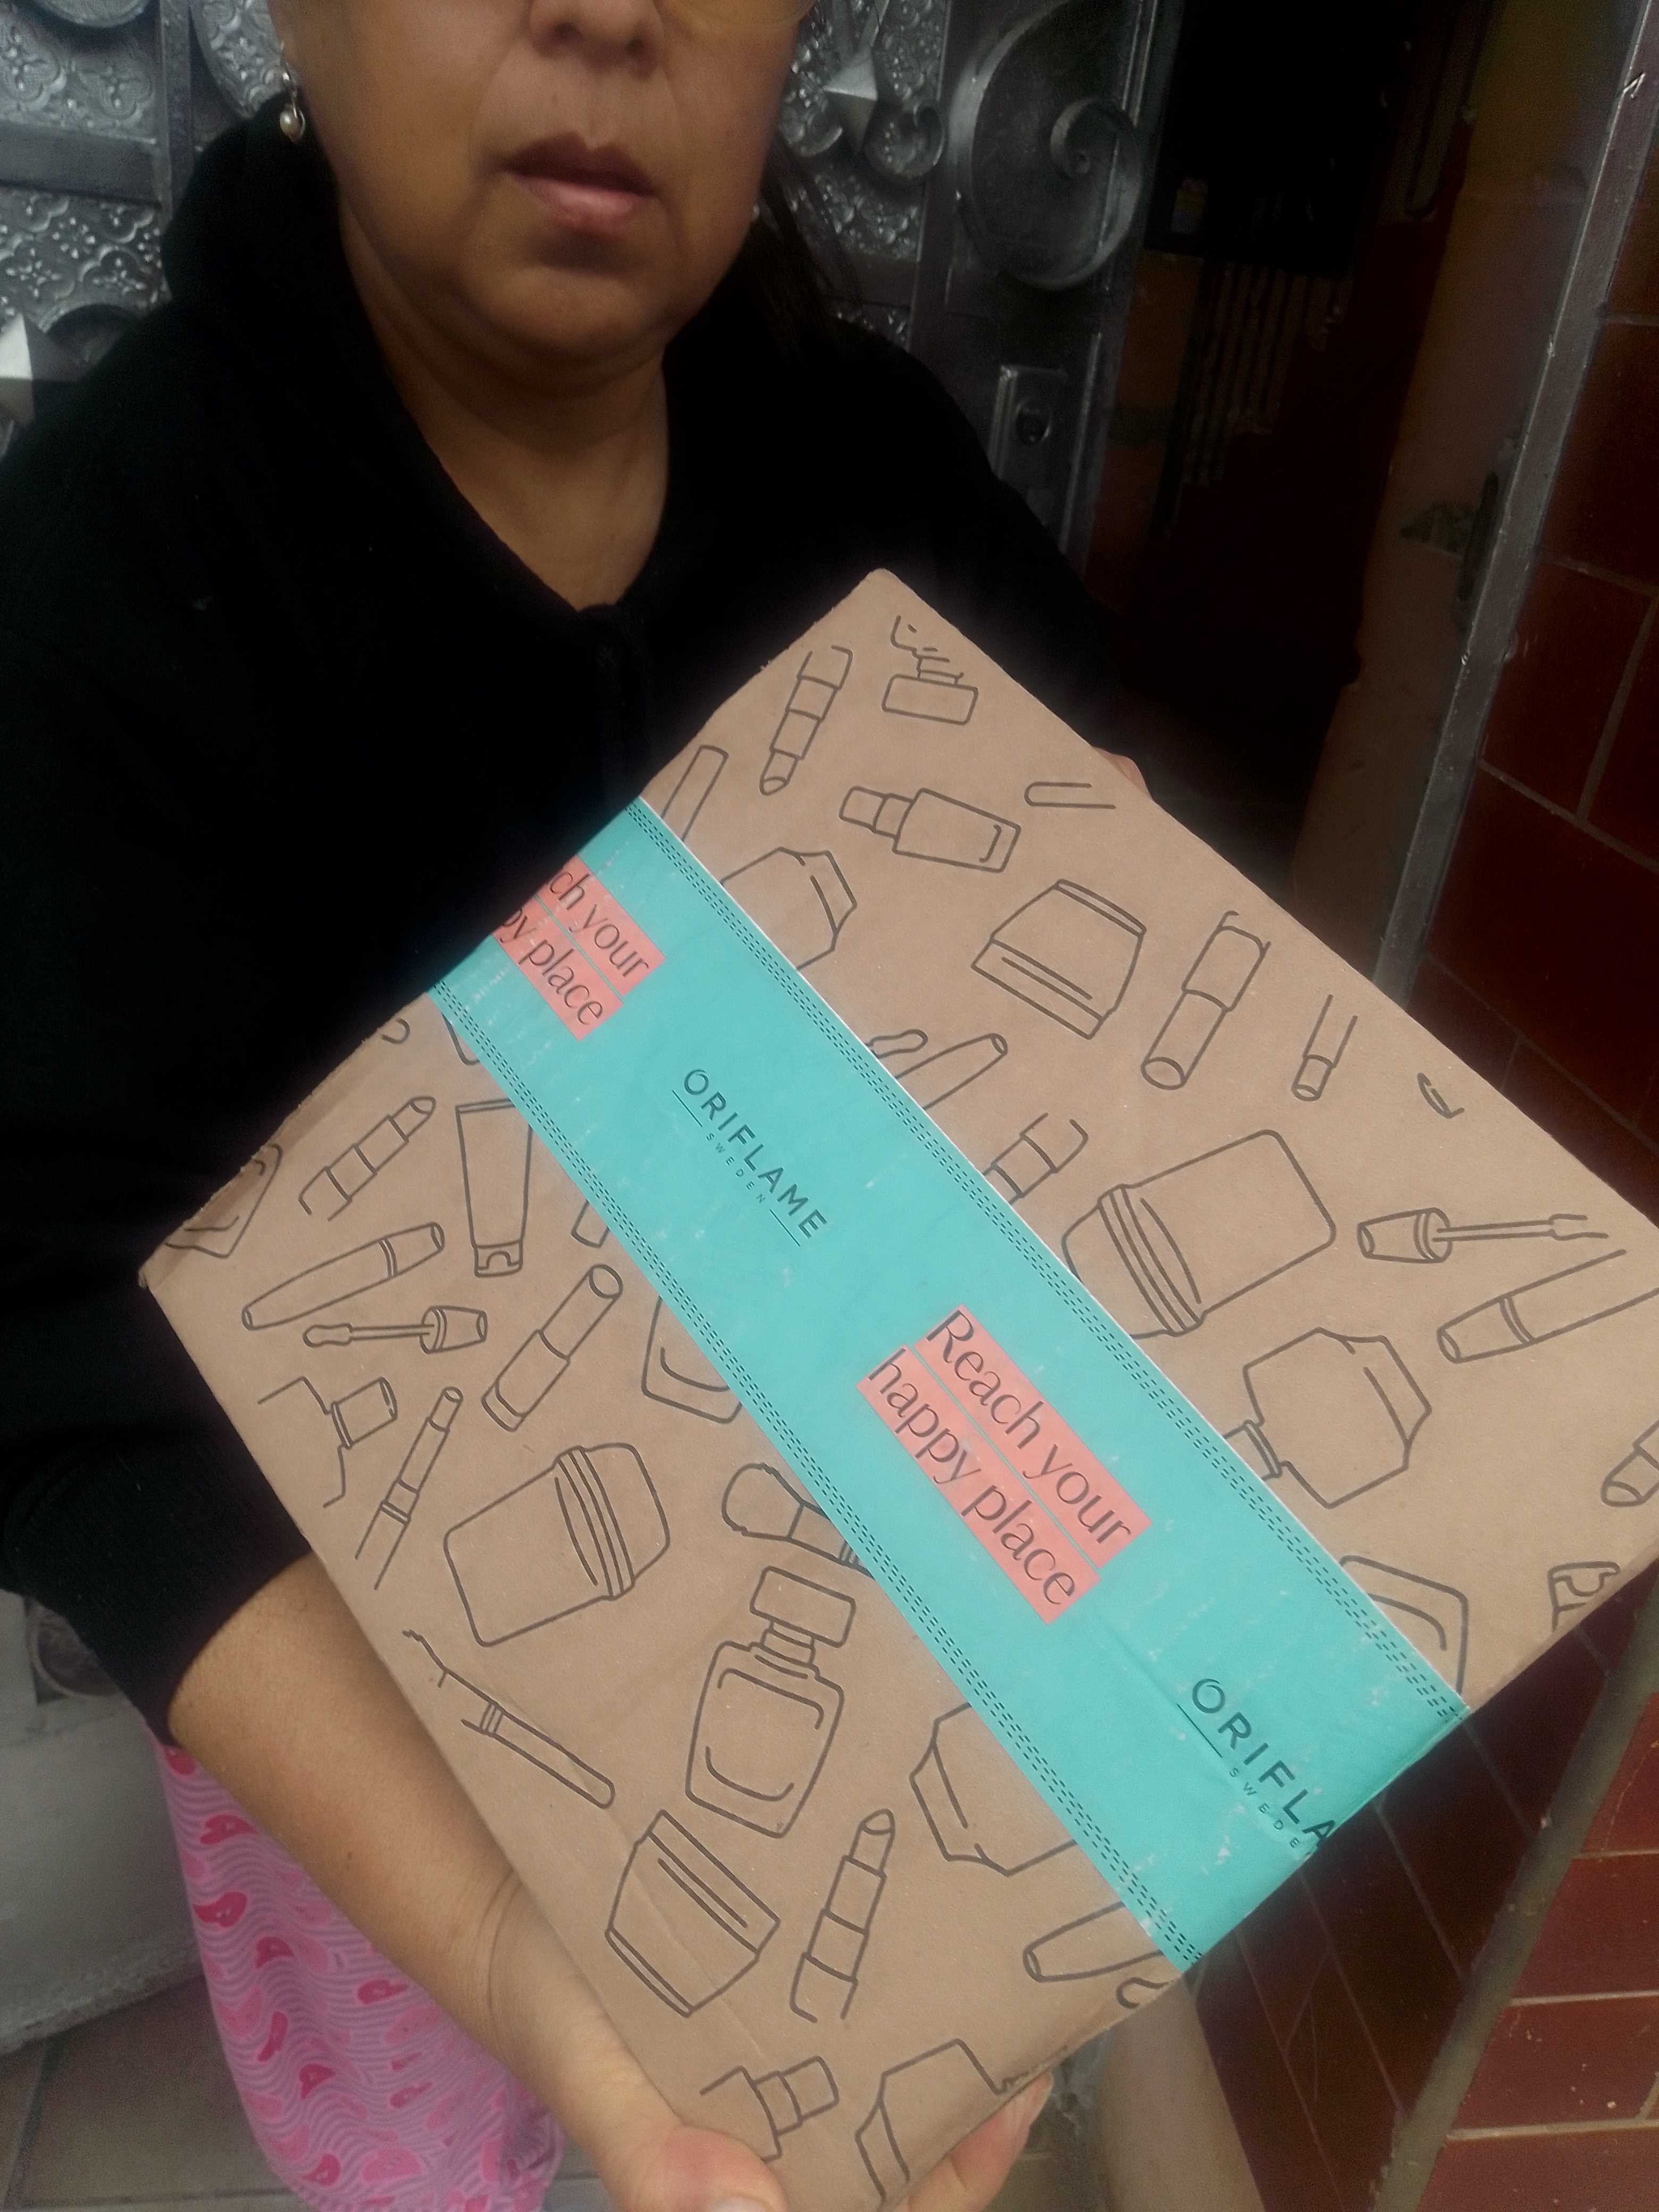 ch your
py place
ORIFLAME
SWEDEN
Reach your
happy place
ORIFLA
SWEDE